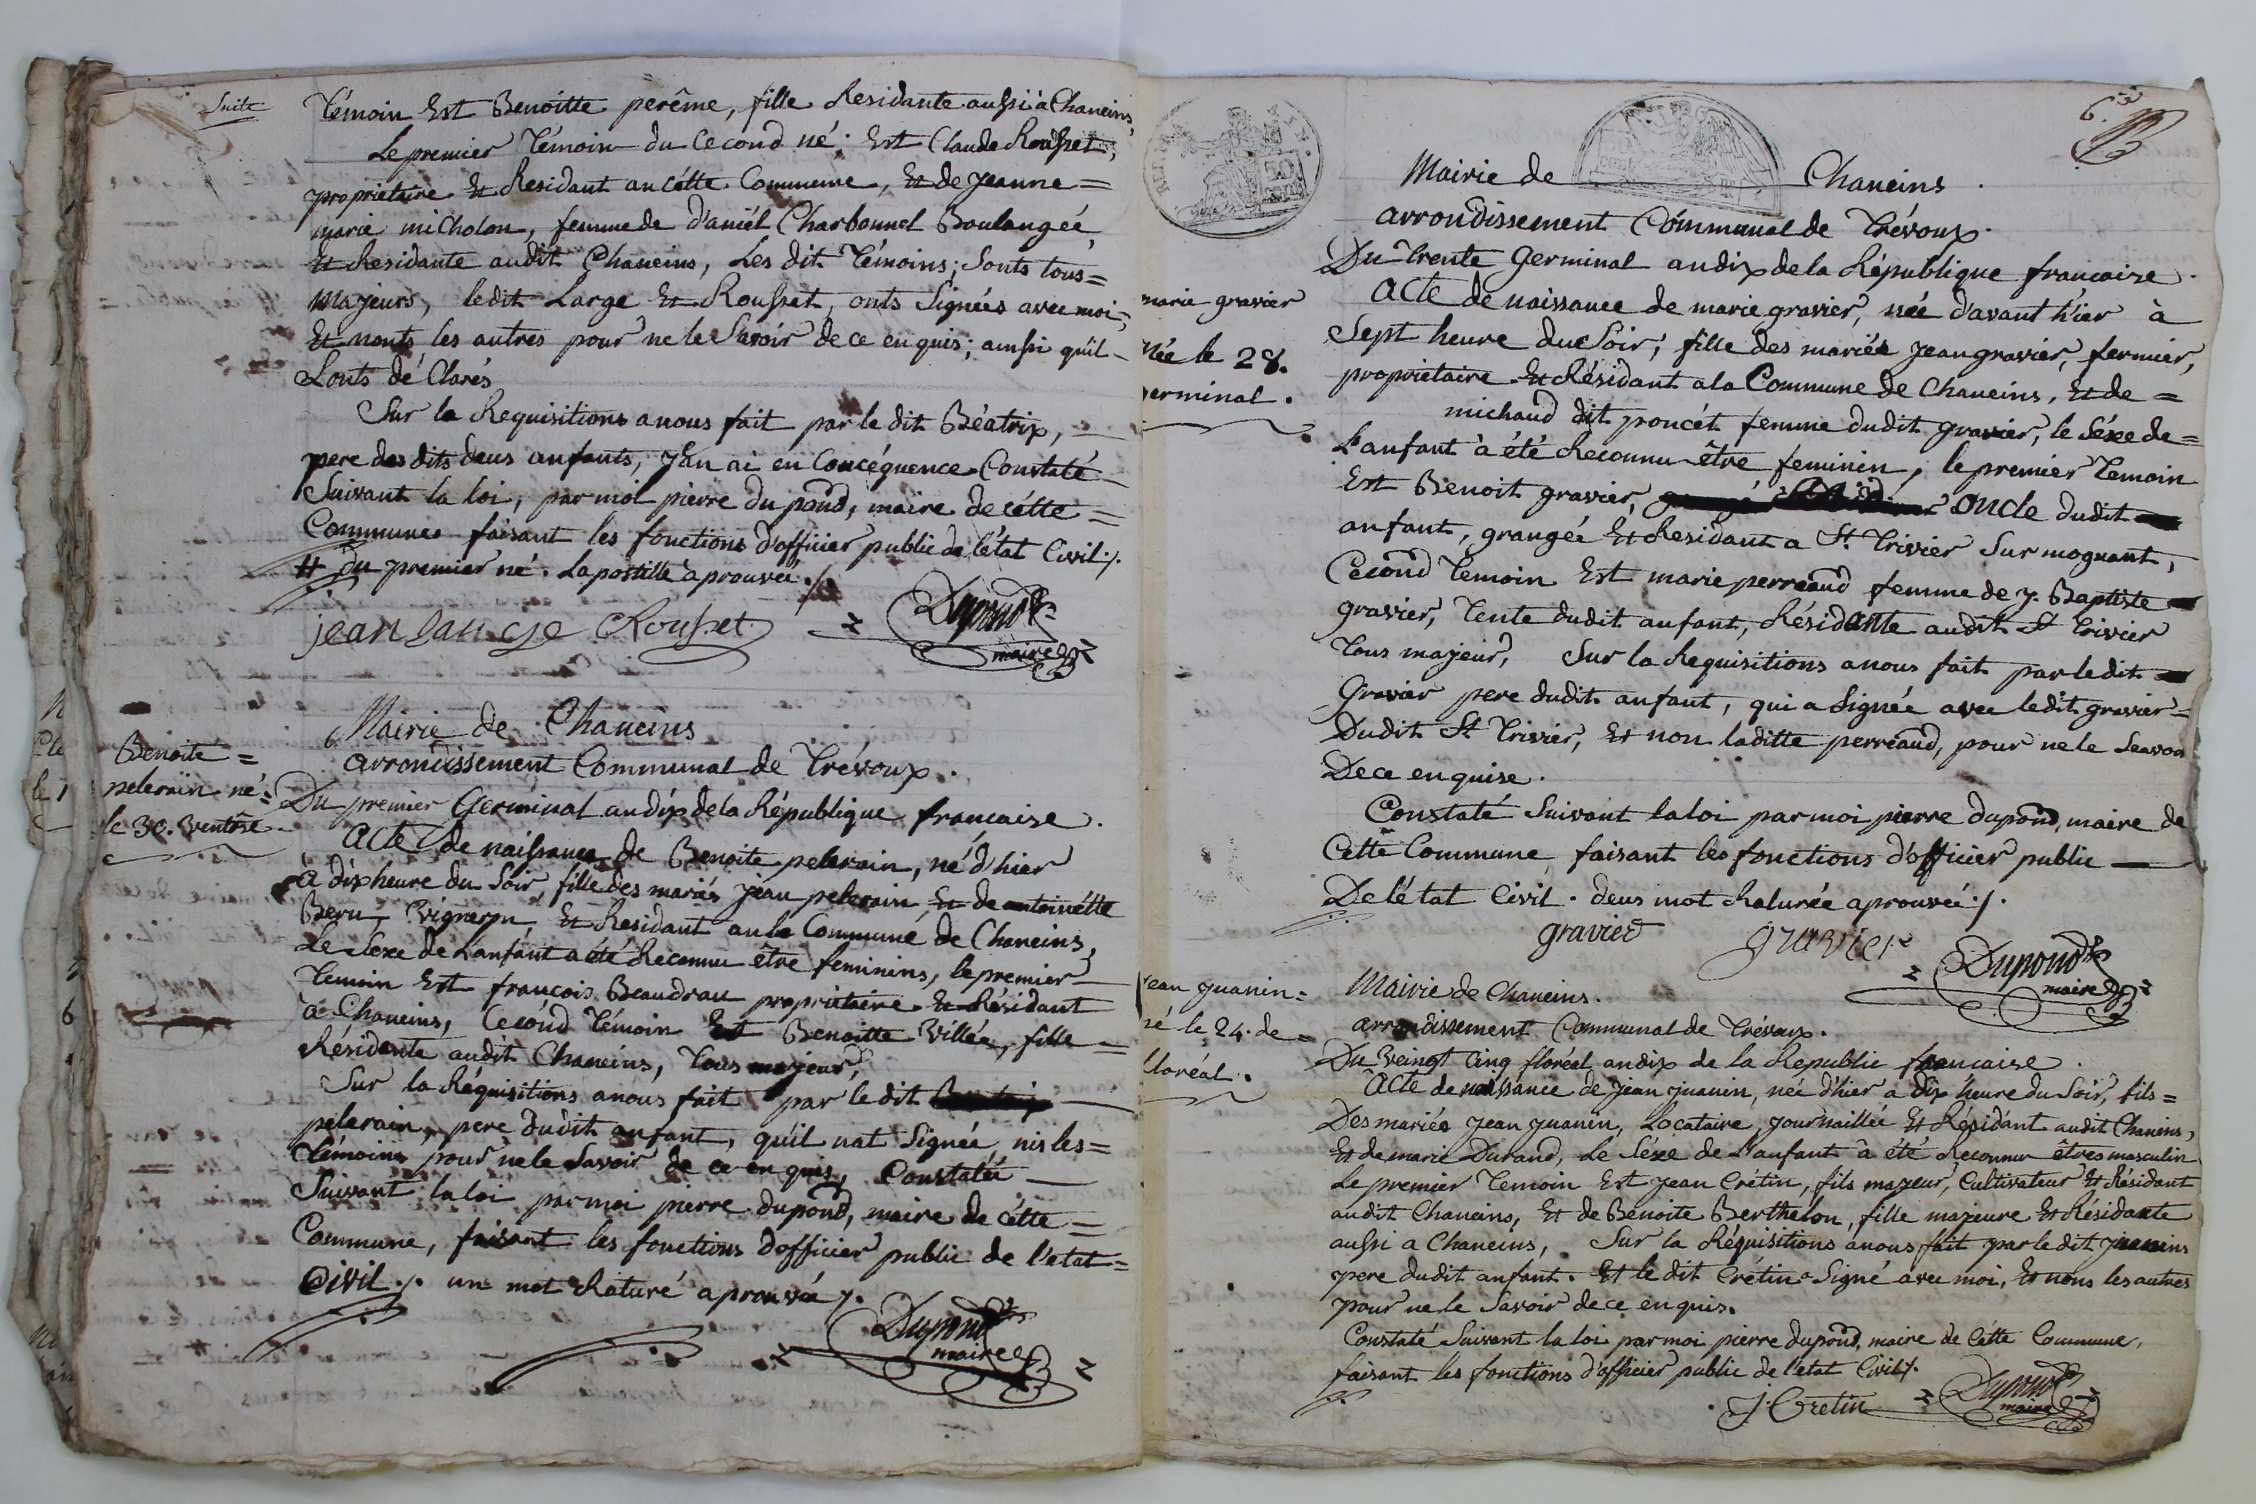 Suite
Témoin Est Benoitte perême, fille Residante aussi à Chaneins,
Le premier Témoin du Cecond né; Est Claude Rousset,
proprietaire Et Residant au cétte Commune, Et de jeanne =
marie micholon, femme de d'aniél Charbonnel Boulangée,
Et Residante audit Chaneins, Les dit Témoins; Sonts tous =
majeurs, ledit Large Et Rousset, onts Signées avec moi,
Et nonts les autres pour ne le Savoir de ce enquis; ainsi qu'il
Lonts dé Clarés
Sur la Requisitions a nous fait par le dit Béatrix,
pere des dits deus anfants, J'an ai en Concéquence Constaté
Suivant la loi, par moi pierre du pond, maire de cétte =
Commune faisant les fonctions d'officier public de l'état Civil ./.
# du premier né. La postille aprouvée ./.
jean Large Rousset Dupond
maire
Mairie de Chaneins
arrondissement Communal de Trévoux.
Benoite =
pelerain né =
le 30. Ventôse
Du premier Germinal an dix de la République francaise.
Acte de naissance de Benoite pelerain, né d'hier
à dix heure du Soir, fille des mariés jean pelerain, Et de antoinétte
Beru Vigneron, Et Residant au la Commune de Chaneins,
Le Sexe de Lanfant a été Reconnu être feminins, le premier
Temoin Est francois Beaudrau proprietaire Et Résidant
a Chaneins, Cecond Témoin Est Benoitte Villée, fille
Résidante audit Chaneins, Tous majeur,
Sur la Réquisitions a nous fait par le dit
pelerain, pere dudit anfant, qu'il nat Signée nis les =
témoins pour ne le Savoir de ce enquis, Constatée
Suivant la loi par moi pierre dupond, maire de cétte =
Commune, faisant les fonctions d'officier public de l'etat =
Civil ./. un mot Raturé aprouvé ./.
Dupond
maire
6
Mairie de Chaneins
arrondissement Communal de Trévoux.
Du Trente Germinal an dix de la République francaise.
marie gravier
Née le 28.
germinal.
Acte de naissance de marie gravier, née d'avant h'ier à
Sept heure du Soir; fille des mariés jean gravier, fermier,
proprietaire Et Résidant a la Commune de Chaneins, Et de =
michaud dit poncét femme dudit gravier, le Séxe de =
L'anfant à été Reconnu être feminin, le premier Temoin
Est Benoit gravier, oncle dudit
anfant, grangée Et Residant a St. Trivier Sur mognant,
Cecond Temoin Est marie perreaud femme de j. Baptiste
gravier, Tente dudit anfant, Résidante audit St Trivier
Tous majeur, Sur la Requisitions a nous fait par le dit
Gravier pere dudit anfant, qui a Signée avec le dit gravier =
Dudit St. Trivier, Et non laditte perreaud, pour ne le Seavoir
De ce enquise.
Constaté Suivant la loi par moi pierre dupond, maire de
Cette Commune, faisant les fonctions d'officier public
De l'état Civil. deus mot Raturée aprouveé ./.
gravier gravier Dupond
maire
Mairie de Chaneins.
arrondissement Communal de Trévoux.
jean juanin =
né le 24. de =
floréal.
Du Veingt Cinq floréal an dix de la Republic francaise.
Acte de naissance de jean juanin, née d'hier a dix heure du Soir, fils =
Des mariés jean juanin, Locataire, journaillée Et Résidant audit Chaneins,
Et de marie Durand, Le Séxe de L'anfant à été Reconnur êtres masculin
Le premier Temoin Est jean Crétin, fils majeur, Cultivateur Et Résidant
audit Chaneins, Et de Benoite Berthelon, fille majeure Et Résidante
aussi a Chaneins, Sur la Réquisitions a nous fait par le dit juanins
pere dudit anfant. Et le dit Crétin a Signé avec moi, Et nons les autres
pour ne le Savoir de ce enquis.
Constaté Suivant la loi par moi pierre dupond, maire de cétte Commune,
faisant les fonctions d'officier public de l'état Civil ./.
J. Cretin Dupond
maire